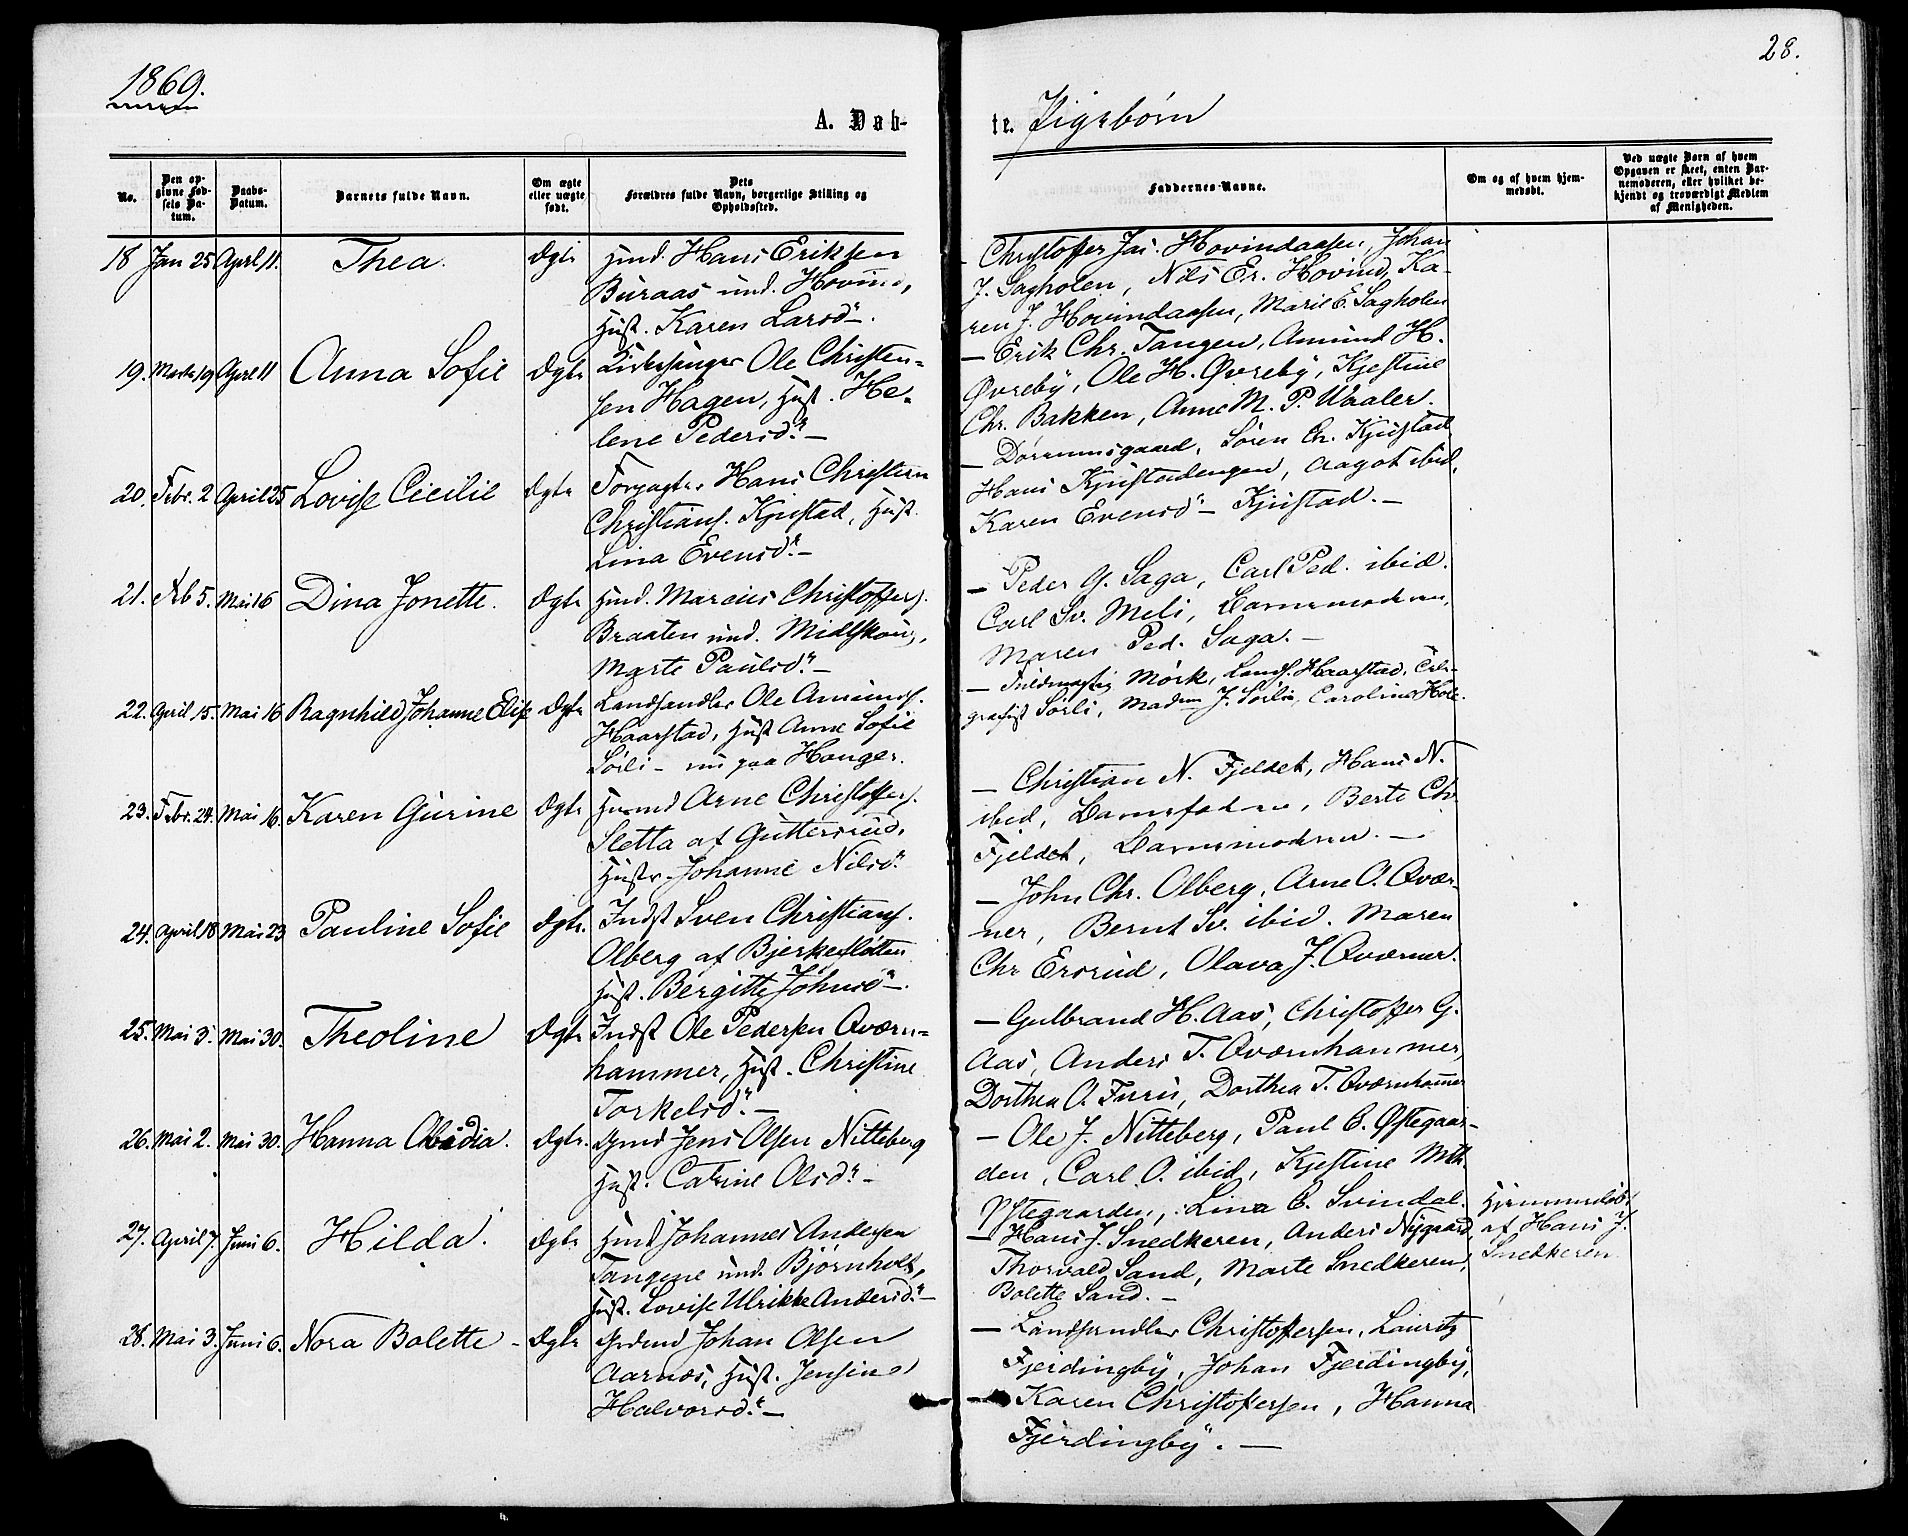 1869.
28.
A. Døb-
te. Pigebørn
No.
Den op-
givne Fød-
sels Da-
tum.
Daabs-
Datum.
Barnets fulde Navn.
Om ægte
eller uægte
født.
Dets
Forældres fulde Navn, borgerlige Stilling og
Opholdssted.
Faddernes Navne.
Om og af hvem hjem-
medøbt.
Ved uægte Børn af hvem
Opgaven er skeet, enten Bar-
nemoderen, eller hvilket be-
kjendt og troværdigt Medlem
af Menigheden.
18 Jan 25 April 11. Thea. Ægte Husmd. Hans Eriksen
Buraas und. Hovind,
Hust. Karen Larsd. –
– Christoffer Jas. Hovindaasen, Johan
J. Sagholen, Nils Er. Hovind, Ka-
ren J. Hovindaasen, Marie E. Sagholen
19. Marts 19 April 11 Anna Sofie Ægte Kirkesanger Ole Christen-
sen Hagen, Hust. He-
lene Pedersd. –
– Erik Chr. Tangen, Amund H.
Øvreby, Ole H. Øvreby, Kjestine
Chr. Bakken, Anne M. P. Waaler.
20. Febr. 2 April 25 Lovise Cicilie Ægte Forpagter Hans Christian
Christians. Kjustad, Hust.
Lina Evensd. –
– Dørrumsgaard, Søren Ch. Kjustad
Hans Kjustadengen, Aagot ibid.
Karen Evensd. – Kjustad. –
21. Feb 5. Mai 16 Dina Jonette. Ægte Husmd. Marcus Christoffers.
Braaten und. Midtskoug,
Marte Paulsd. –
– Peder G. Saga, Carl Ped. ibid.
Carl Sv. Meli, Barnemoderen,
Maren Ped. Saga. –
22. April 15. Mai 16 Ragnhild Johanne Elise Ægte Landhandler Ole Amunds.
Haarstad, Hust Anne Sofie
Sørli – nu paa Hanger.
– Fuldmægtig Mørk, Landh. Haarstad, Tele-
grafist Sørli, Madm J. Sørli, Caroline Hole.
23. Febr. 24. Mai 16. Karen Gurine Ægte Husmd Arne Christoffers.
Sletta af Guttersrud,
Hustr. Johanne Nilsd.
– Christian N. Fjeldet, Hans N.
ibid, Barnefaderen, Berte Chr
Fjeldet, Barnemoderen. –
24. April 18 Mai 23 Pauline Sofie Ægte. Indst Sven Christians.
Olberg af Bjerkesletten
Hust. Bergitte Johnsd –
– John Chr. Olberg, Arne O. Qvær-
ner, Bernt Sv. ibid. Maren
Chr Ersrud, Olava J. Qværner.
25. Mai 3. Mai 30. Theoline Ægte Indst Ole Pedersen Qværn-
hammer, Hust. Christine
Torkelsd. –
– Gulbrand H. Aas, Christoffer G.
Aas, Anders T. Qværnhammer,
Dorthea O. Furu, Dorthea T. Qværnhammer
26. Mai 2. Mai 30. Hanna Abidia. Ægte. Grmd Jens Olsen Nitteberg
Hust. Catrine Olsd. –
– Ole J. Nitteberg, Paul C. Østegaar-
den, Carl O. ibid, Kjestine Mth.
Østegaarden, Lina C. Svindal
27. April 7. Juni 6. Hilda. Ægte Husmd Johannes Andersen
Tangene und. Bjørnholt,
Hust. Lovise Ulrikke Andersd. –
– Hans J. Snedkeren, Anders Nygaard
Thorvald Sand, Marte Snedkeren,
Bolette Sand. –
Hjemmedøbt
af Hans J.
Snedkeren
28. Mai 3. Juni 6. Nora Bolette – Ægte Grdmd Johan Olsen
Aarnæs, Hust. Jensine
Halvorsd. –
– Landhandler Christoffersen, Lauritz
Fjerdingby, Johan Fjerdingby,
Karen Christofersen, Hanna
Fjerdingby. –